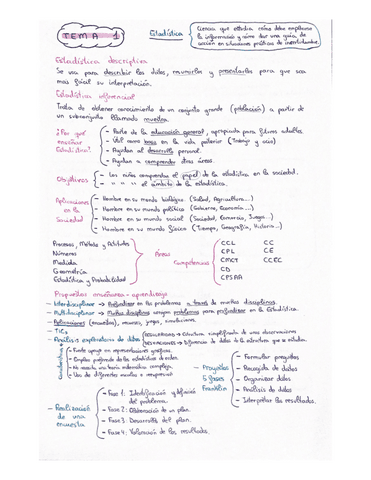 TEMA 1
Estadística
Ciencia que estudia cómo debe emplearse
la información y cómo dar una guía de
acción en situaciones prácticas de incertidumbre.
Estadística descriptiva
Se usa para describir los datos, resumirlos y presentarlos para que sea
más fácil su interpretación.
Estadística inferencial
Trata de obtener conocimiento de un conjunto grande (población) a partir de
un subconjunto llamado muestra.
¿Por qué
enseñar
Estadística?
- Parte de la educación general, apropiada para futuros adultos.
- Útil como base en la vida posterior (Trabajo y ocio)
- Ayudan al desarrollo personal.
- Ayudan a comprender otras áreas.
Objetivos
- Los niños comprendan el papel de la estadística en la sociedad.
- " " " el ámbito de la estadística.
Aplicaciones
en la
Sociedad
- Hombre en su mundo biológico (Salud, Agricultura...)
- Hombre en su mundo político (Gobierno, Economía...)
- Hombre en su mundo social (Sociedad, Comercio, Juegos...)
- Hombre en su mundo físico (Tiempo, Geografía, Historia...)
Procesos, Métodos y Actitudes
Números
Medida
Geometría
Estadística y Probabilidad
Áreas
Competencias
CCL CC
CPL CE
CMCT CCEC
CD
CPSAA
Propuestas enseñanza-aprendizaje
- Interdisciplinar → Profundizar en los problemas a través de muchas disciplinas.
- Multidisciplinar → Muchas disciplinas acogen problemas para profundizar en la Estadística.
- Aplicaciones (encuestas), murales, juegos, simulaciones.
- TICs
- Análisis exploratorio de datos
REGULARIDADES → Estructura simplificada de unas observaciones
DESVIACIONES → Diferencia de datos a la estructura que se estudian
Características
- Fuerte apoyo en representaciones gráficas.
- Empleo preferente de los estadísticos de orden.
- No necesita una teoría matemática compleja.
- Uso de diferentes escalas o reexpresión
- Proyectos
5 fases
Franklin
- Formular preguntas
- Recogida de datos
- Organizar datos
- Análisis de datos
- Interpretar los resultados.
- Realización
de una
encuesta
- Fase 1: Identificación y definición
del problema.
- Fase 2: Elaboración de un plan.
- Fase 3: Desarrollo del plan.
- Fase 4: Valoración de los resultados.